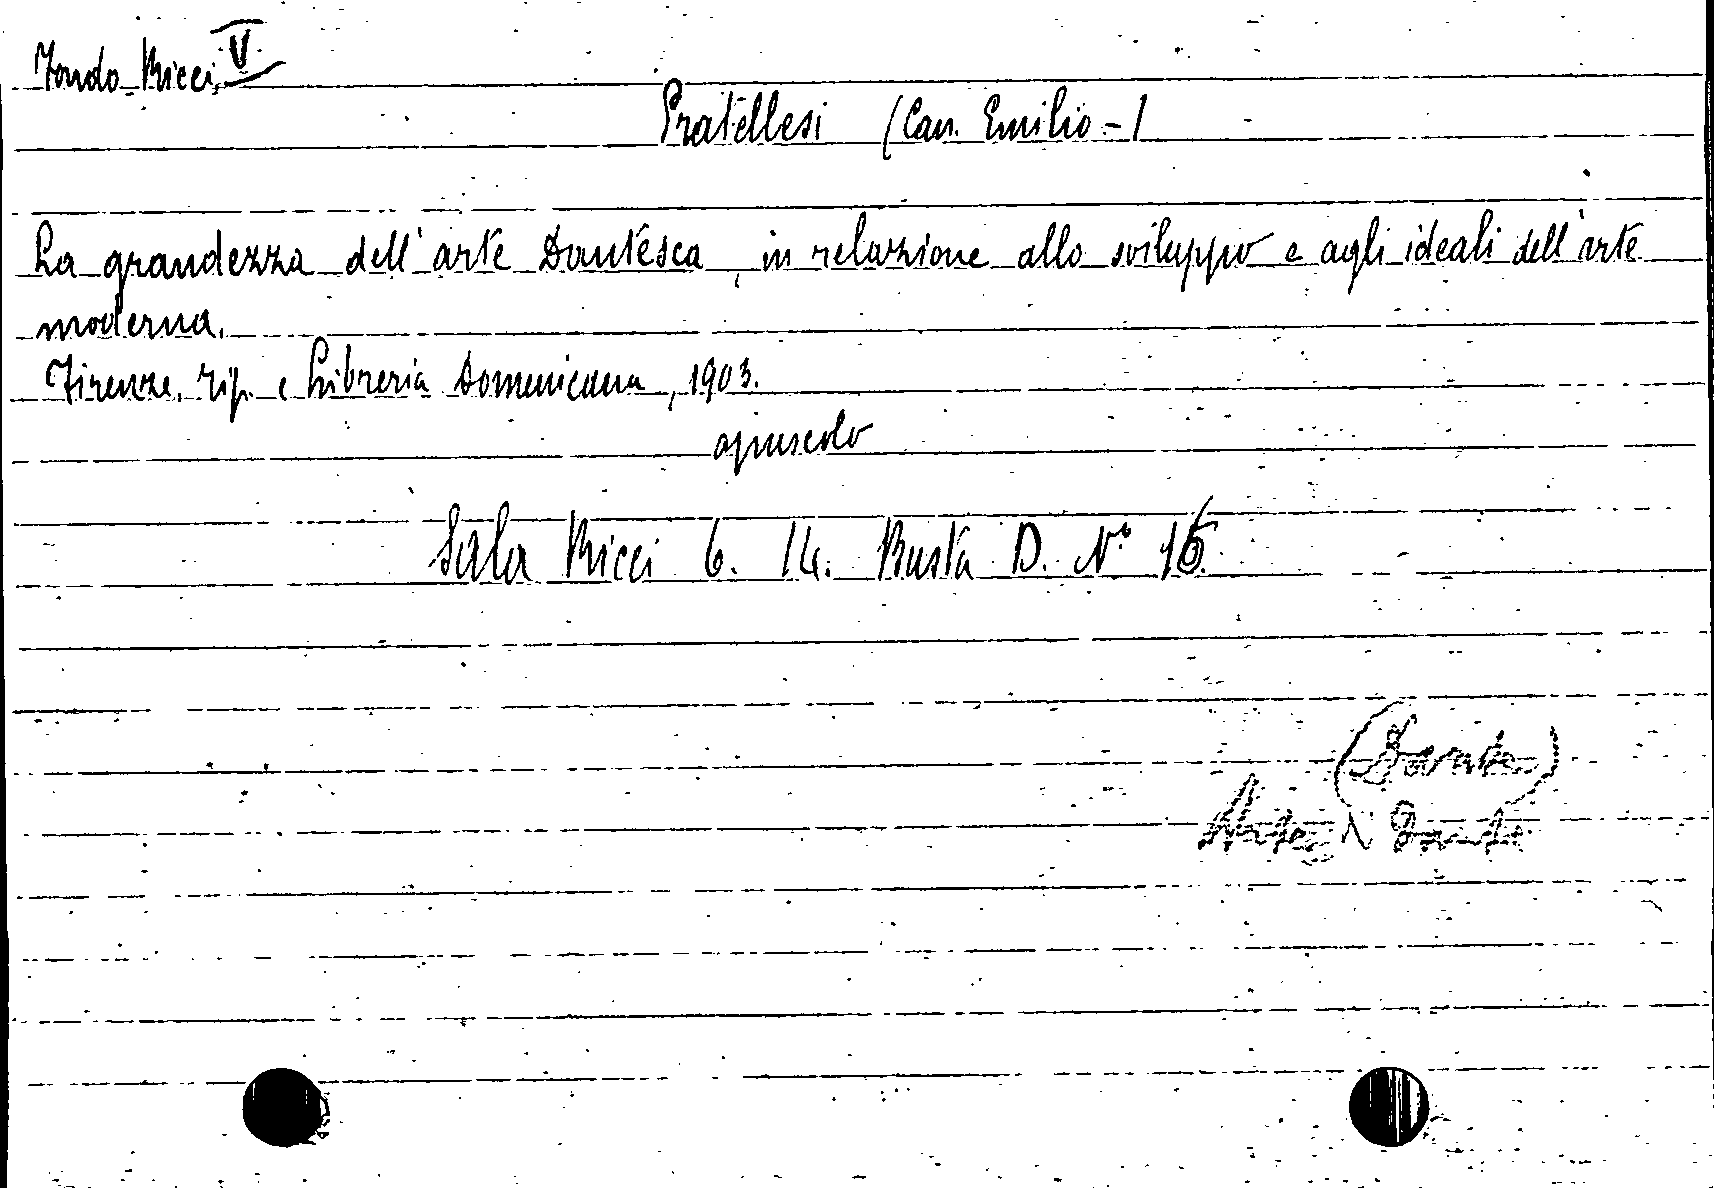 Fondo Ricci V
Pratellesi (Can. Emilio-)
La grandezza dell'arte Dantesca, in relazione allo sviluppo e agli ideali dell'arte
moderna.
Firenze. Tip. e Libreria Domenicana, 1903.
opuscolo
Sala Ricci 6. 14. Busta D. N° 16.
(Dante)
Dante